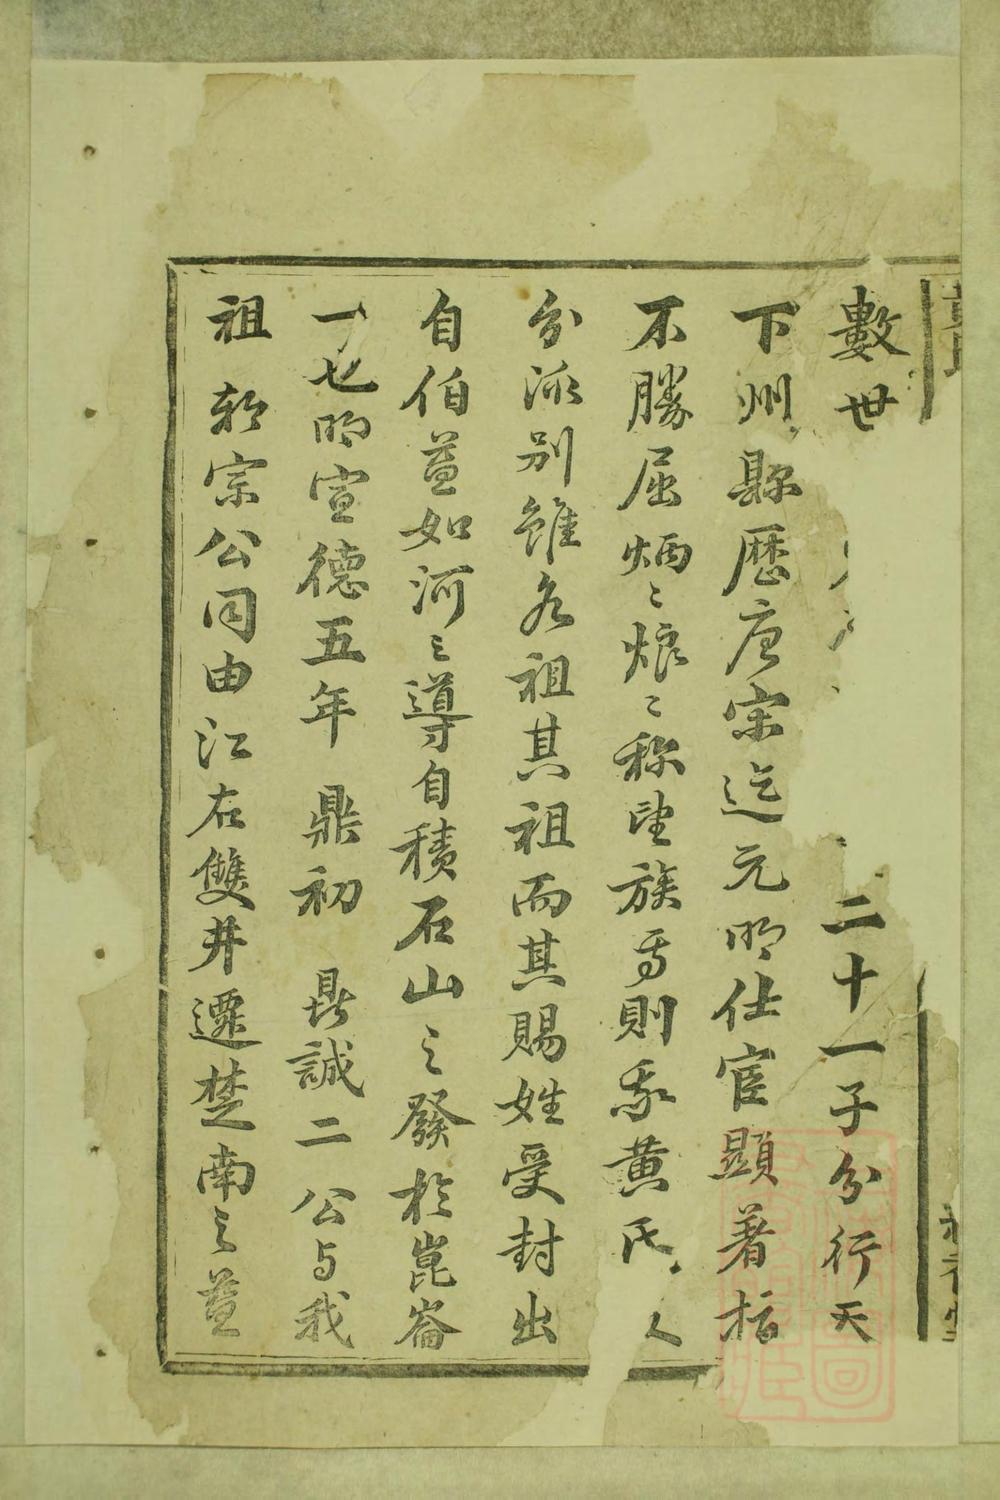 數世二十一子分行天
下州縣歷唐宋迄元明仕宦顯著指
不勝屈炳〻烺〻称望族焉則我黄氏人
分派别雖各祖其祖而其賜姓受封出
自伯益如河之導自積石山之發於崑崙
一也明宣德五年 鼎初 鼎誠二公与我
祖 朝宗公同由江右雙井遷楚南之益